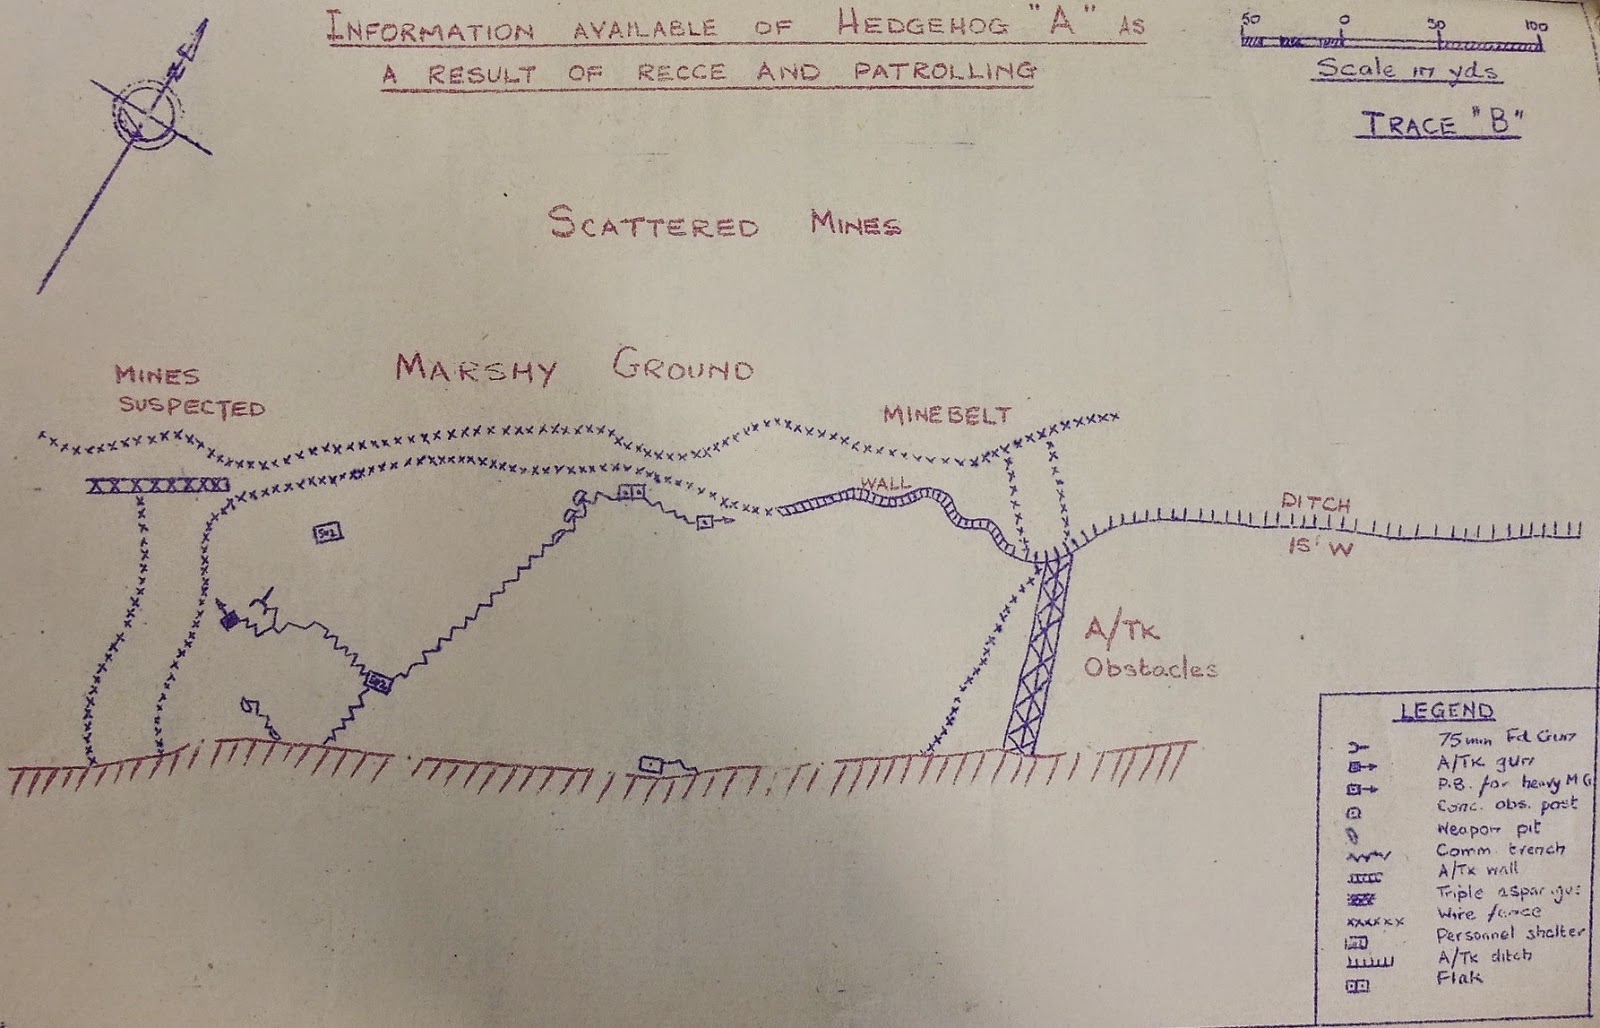 INFORMATION AVAILABLE OF HEDGEHOG "A" AS
A RESULT OF RECCE AND PATROLLING
50 0 50 100
Scale in yds
TRACE "B"
SCATTERED MINES
MINES
SUSPECTED
MARSHY GROUND
MINEBELT
WALL
DITCH
15' W
A/TK
Obstacles
LEGEND
75mm Fd Gun
A/Tk gun
P.B. for heavy MG
Conc. obs. post
Weapon pit
Comm. trench
A/Tk wall
Triple asparagus
Wire fence
Personnel shelter
A/Tk ditch
Flak